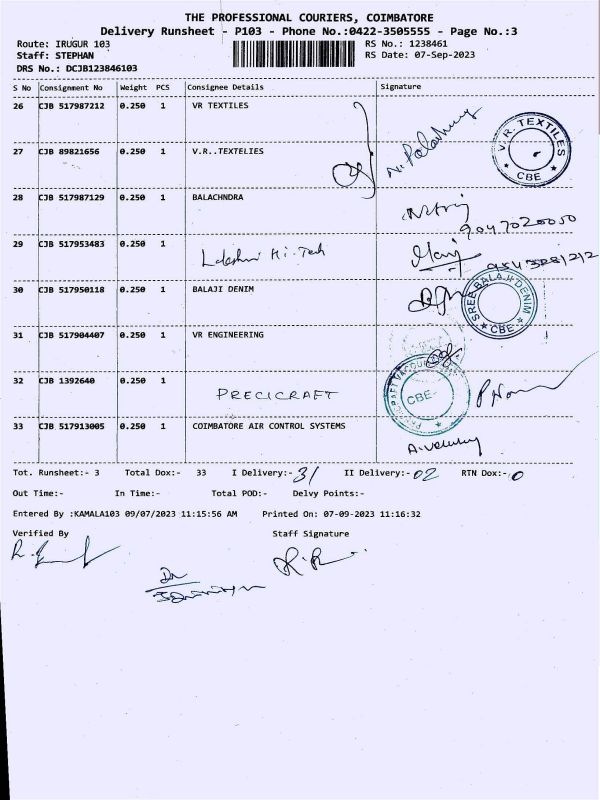 THE PROFESSIONAL COURIERS, COIMBATORE
Delivery Runsheet - P103 - Phone No.:0422-3505555 - Page No.:3
Route: IRUGUR 103
RS No.: 1238461
Staff: STEPHAN
RS Date: 07-Sep-2023
DRS No.: DCJB123846103
S No Consignment No Weight PCS Consignee Details Signature
26 CJB 517987212 0.250 1 VR TEXTILES
27 CJB 89821656 0.250 1 V.R..TEXTELIES
V.R. TEXTILES
CBE
28 CJB 517987129 0.250 1 BALACHNDRA
9047020050
29 CJB 517953483 0.250 1 Lakshmi Hi-Tech
30 CJB 517950118 0.250 1 BALAJI DENIM
SREE BALAJI DENIM
CBE
31 CJB 517904407 0.250 1 VR ENGINEERING
32 CJB 1392640 0.250 1 PRECICRAFT
CBE-
33 CJB 517913005 0.250 1 COIMBATORE AIR CONTROL SYSTEMS
Tot. Runsheet:- 3 Total Dox:- 33 I Delivery:- 31 II Delivery:- 02 RTN Dox:- 0
Out Time:- In Time:- Total POD:- Delvy Points:-
Entered By :KAMALA103 09/07/2023 11:15:56 AM Printed On: 07-09-2023 11:16:32
Verified By Staff Signature